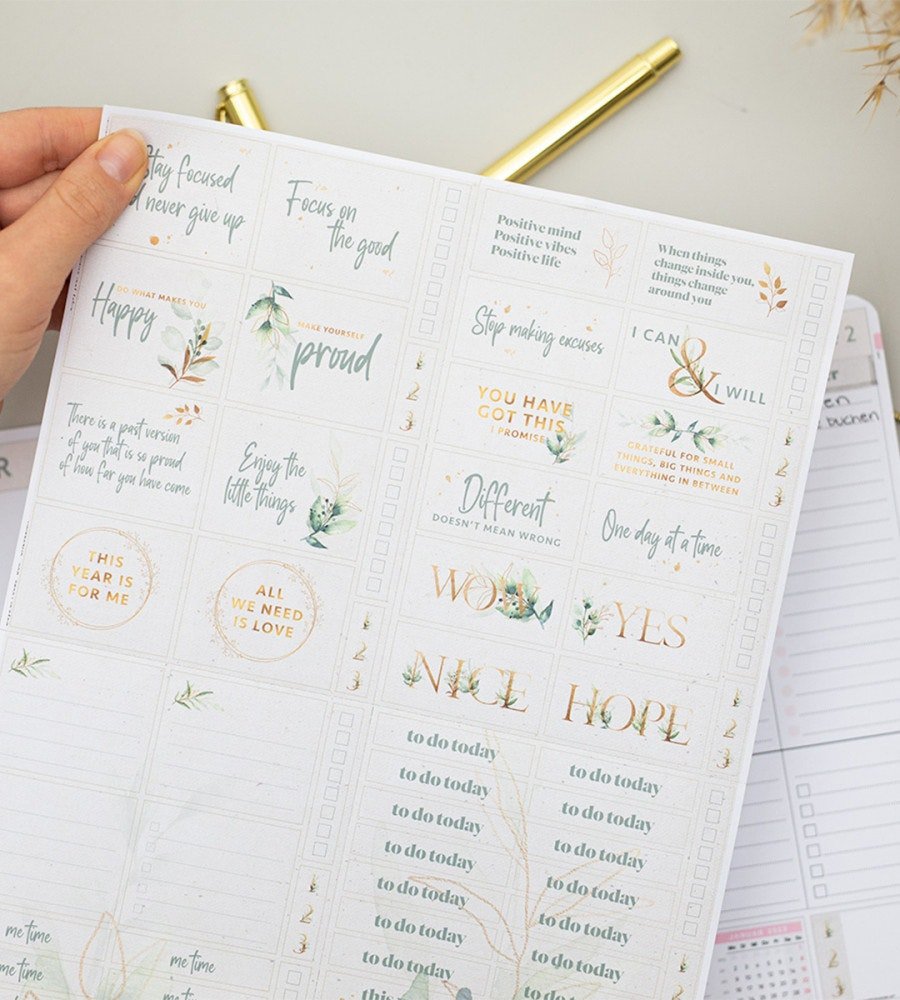 Stay focused
never give up
Focus on
the good
DO WHAT MAKES YOU
Happy
MAKE YOURSELF
proud
There is a past version
of you that is so proud
of how far you have come
Enjoy the
little things
THIS
YEAR IS
FOR ME
ALL
WE NEED
IS LOVE
1
2
3
1
2
3
Positive mind
Positive vibes
Positive life
When things
change inside you,
things change
around you
Stop making excuses
I CAN
&
I WILL
YOU HAVE
GOT THIS
I PROMISE
GRATEFUL FOR SMALL
THINGS, BIG THINGS AND
EVERYTHING IN BETWEEN
Different
DOESN'T MEAN WRONG
One day at a time
WOW
YES
NICE
HOPE
1
2
3
1
2
3
to do today
to do today
to do today
to do today
to do today
to do today
to do today
to do today
to do today
to do today
to do today
to do today
to do today
to do today
this
to do
1
2
3
me time
me time
me time
me time
R
2
buchen
JANUAR
1
2
3